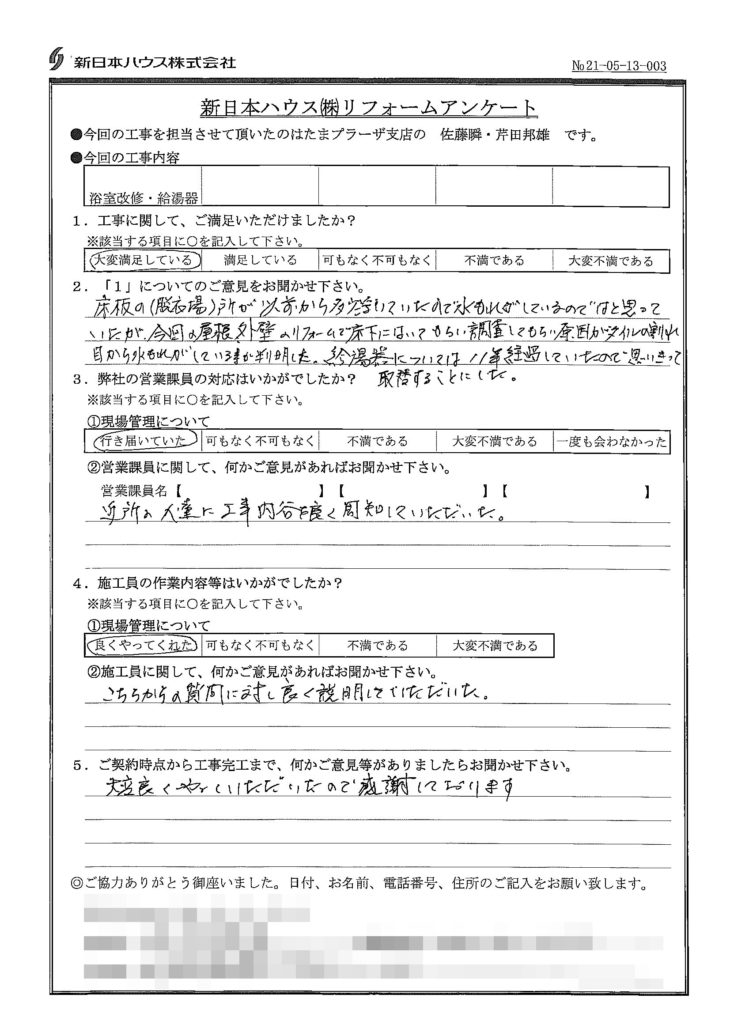 新日本ハウス株式会社
№21-05-13-003
新日本ハウス㈱リフォームアンケート
●今回の工事を担当させて頂いたのはたまプラーザ支店の 佐藤瞬・芹田邦雄 です。
●今回の工事内容
浴室改修・給湯器
1．工事に関して、ご満足いただけましたか？
※該当する項目に○を記入して下さい。
大変満足している 満足している 可もなく不可もなく 不満である 大変不満である
2．「1」についてのご意見をお聞かせ下さい。
床板の(脱衣場)所が以前から多少浮いていたので水もれがしているのではと思って
いたが、今回の屋根、外壁のリフォームで床下にはいってもらい調査してもらい原因がタイルの割れ
目から水もれがしている事が判明した。給湯器については11年経過していたので思いきって
取替することにした。
3．弊社の営業課員の対応はいかがでしたか？
※該当する項目に○を記入して下さい。
①現場管理について
行き届いていた 可もなく不可もなく 不満である 大変不満である 一度も会わなかった
②営業課員に関して、何かご意見があればお聞かせ下さい。
営業課員名【 】【 】【 】
近所の人達に工事内容を良く周知していただいた。
4．施工員の作業内容等はいかがでしたか？
※該当する項目に○を記入して下さい。
①現場管理について
良くやってくれた 可もなく不可もなく 不満である 大変不満である
②施工員に関して、何かご意見があればお聞かせ下さい。
こちらからの質問に対し良く説明していただいた。
5．ご契約時点から工事完工まで、何かご意見等がありましたらお聞かせ下さい。
大変良くやっていただいたので感謝しております
◎ご協力ありがとう御座いました。日付、お名前、電話番号、住所のご記入をお願い致します。